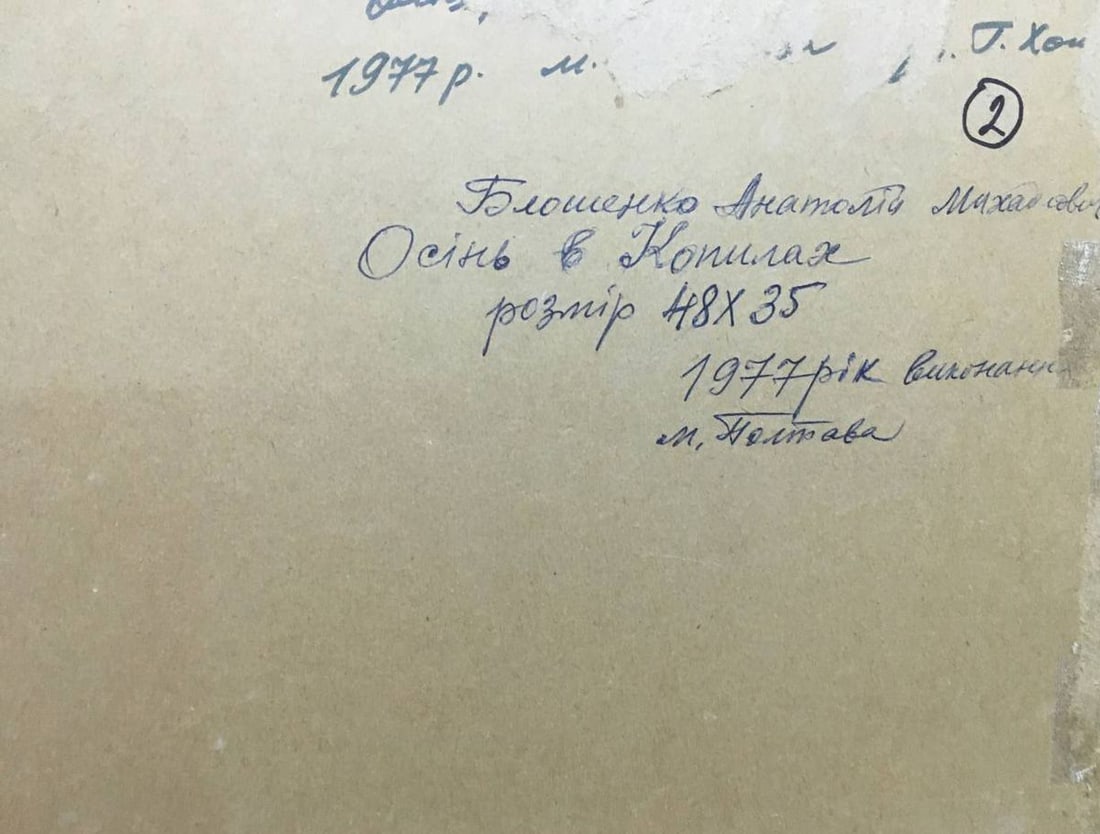 1977 р. м. Г. Хом
2
Блошенко Анатолій
Осінь в Копилах
розмір 48X35
1977 рік виконанн
м, Полтава